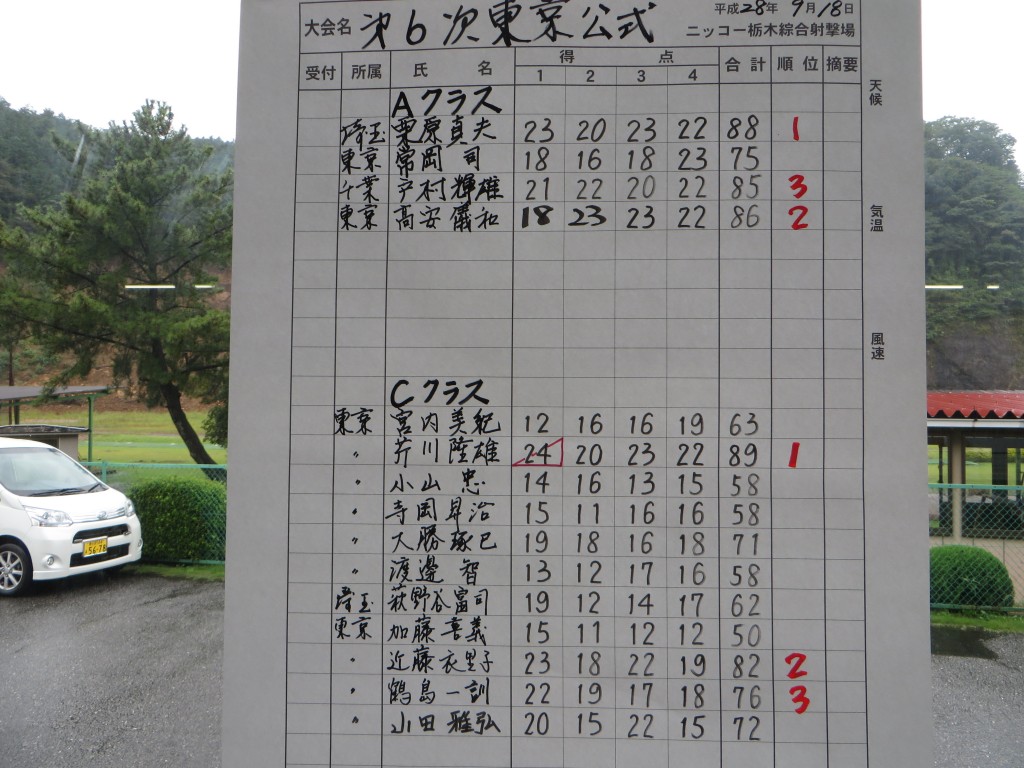 大会名 第6次東京公式 平成28年 9月18日
ニッコー栃木綜合射撃場
受付 所属 氏 名 得 点 合計 順位 摘要
1 2 3 4
天候
気温
風速
Aクラス
埼玉 栗原貞夫 23 20 23 22 88 1
東京 常岡 司 18 16 18 23 75
千葉 戸村輝雄 21 22 20 22 85 3
東京 高安儀和 18 23 23 22 86 2
Cクラス
東京 宮内美紀 12 16 16 19 63
〃 芹川陸雄 24 20 23 22 89 1
〃 小山 忠 14 16 13 15 58
〃 寺岡昇治 15 11 16 16 58
〃 大勝琢巳 19 18 16 18 71
〃 渡邊 智 13 12 17 16 58
埼玉 萩野谷富司 19 12 14 17 62
東京 加藤喜義 15 11 12 12 50
〃 近藤衣里子 23 18 22 19 82 2
〃 鶴島一訓 22 19 17 18 76 3
〃 山田雅弘 20 15 22 15 72
56-78